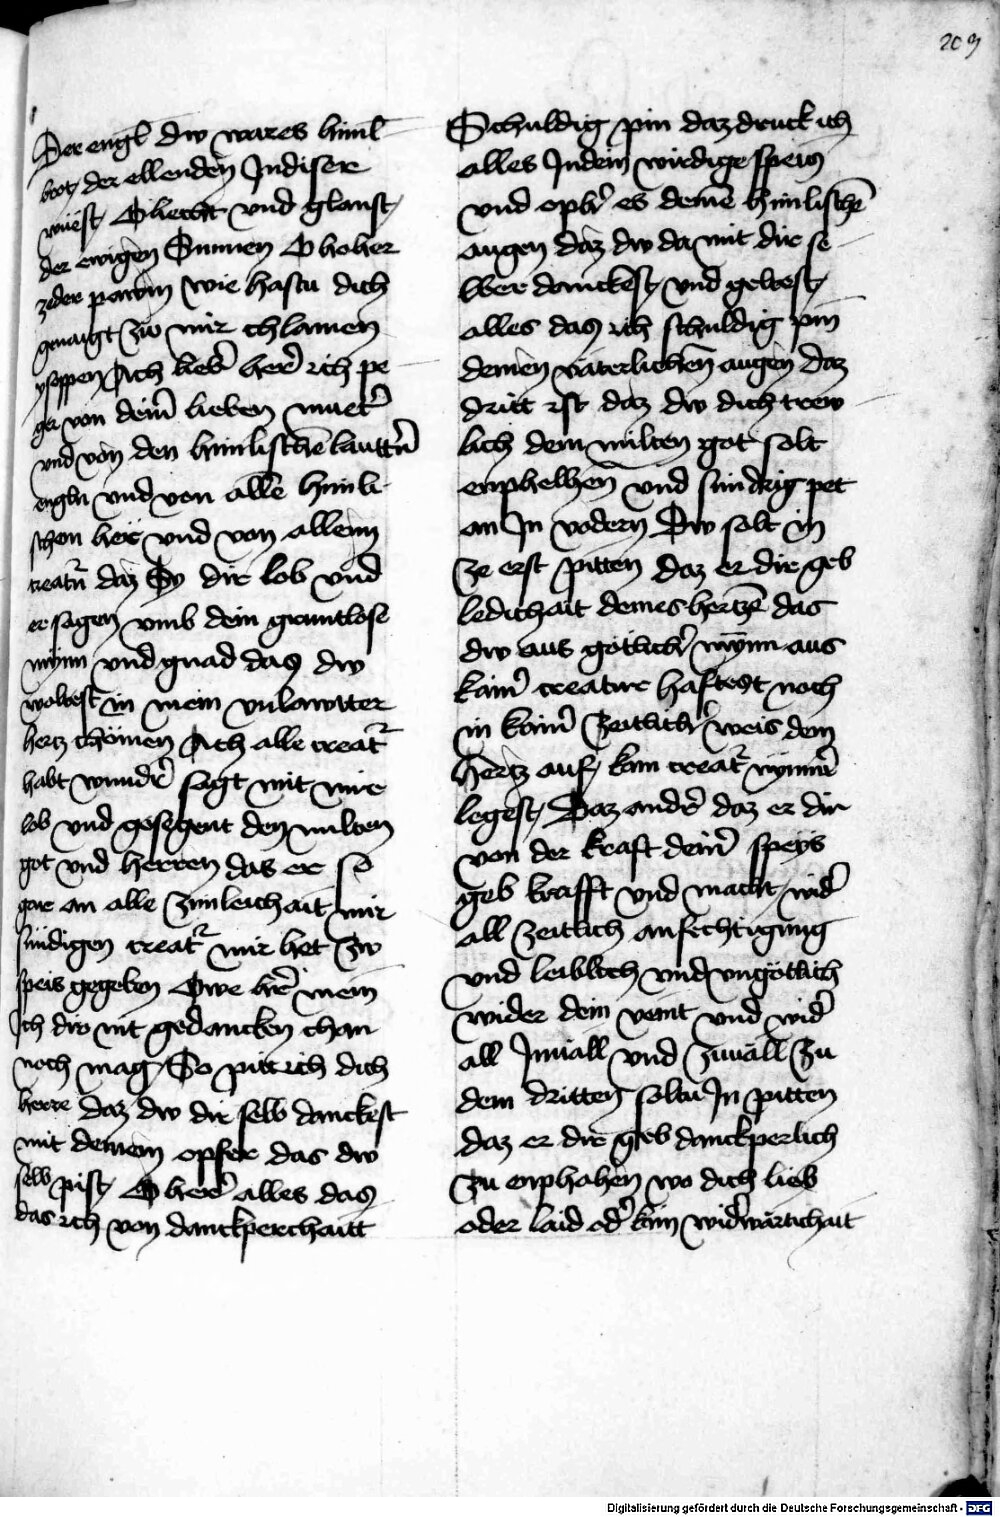 209
Der engl dw wares himl
brot der ellenden Jndiser
wüest O liecht vnd glanst
der ewigen Sunnen O hoher
zeder pawm wie hastu dich
genaigt zw mir chlainen
ysoppen Ach lieb' her' ich pe
ger von dein' lieben muet'
vnd von den himlischē lauttn'
engln vnd von allē himli
schen her vnd von allem
creatn' daz Sy dir lob vnd
er sagen vmb dein gruntlose
mynn vnd gnad das dw
woltest in mein vnlawtter
hertz chömen Ach alle creat'
habt wundr' sagt mit mir
lob vnd gesegent den milten
got vnd herren das er so
gar an alle zimleichait mir
sündigen creat' mir het zw
speis gegeben Owe hr' mein
Jch dir nit gedancken chan
noch mag So pitt ich dich
herre daz dw dir selb danckest
mit deinem opfer das dw
selb pist O herr' alles das
das ich von danckperchaitt
Schuldig pin daz druck ich
alles Jn dein wirdige speis
vnd oph' es deinē himlischē
augen daz dw da mit dir se
lber danckest vnd geltest
alles das ich schuldig pin
deinen väterlichen augen Daz
dritt ist daz dw dich trew
lich dem milten got solt
enphelhen vnd sundrig pet
an Jn vodern Dw solt in
ze erst pitten daz er dir geb
ledichait deines hertzē das
dw aus götlich' mynn aus
kain' creatur haftest noch
in kain' zeitlich' weis dein
hertz auf kain creat' mynn'
legest Daz andr' daz er dir
von der kraft dein' speys
geb krafft vnd macht wid'
all zeitlich anfechtigung
vnd leiblich vnd vngötlich
wider dein veint vnd wid'
all Jnuäll vnd zuuäll Zu
dem dritten soltu Jn pitten
daz er dir geb danckperlich
zu enphahen wo dich lieb
oder laid od' kain wid'wärtichait
Digitalisierung gefördert durch die Deutsche Forschungsgemeinschaft - DFG